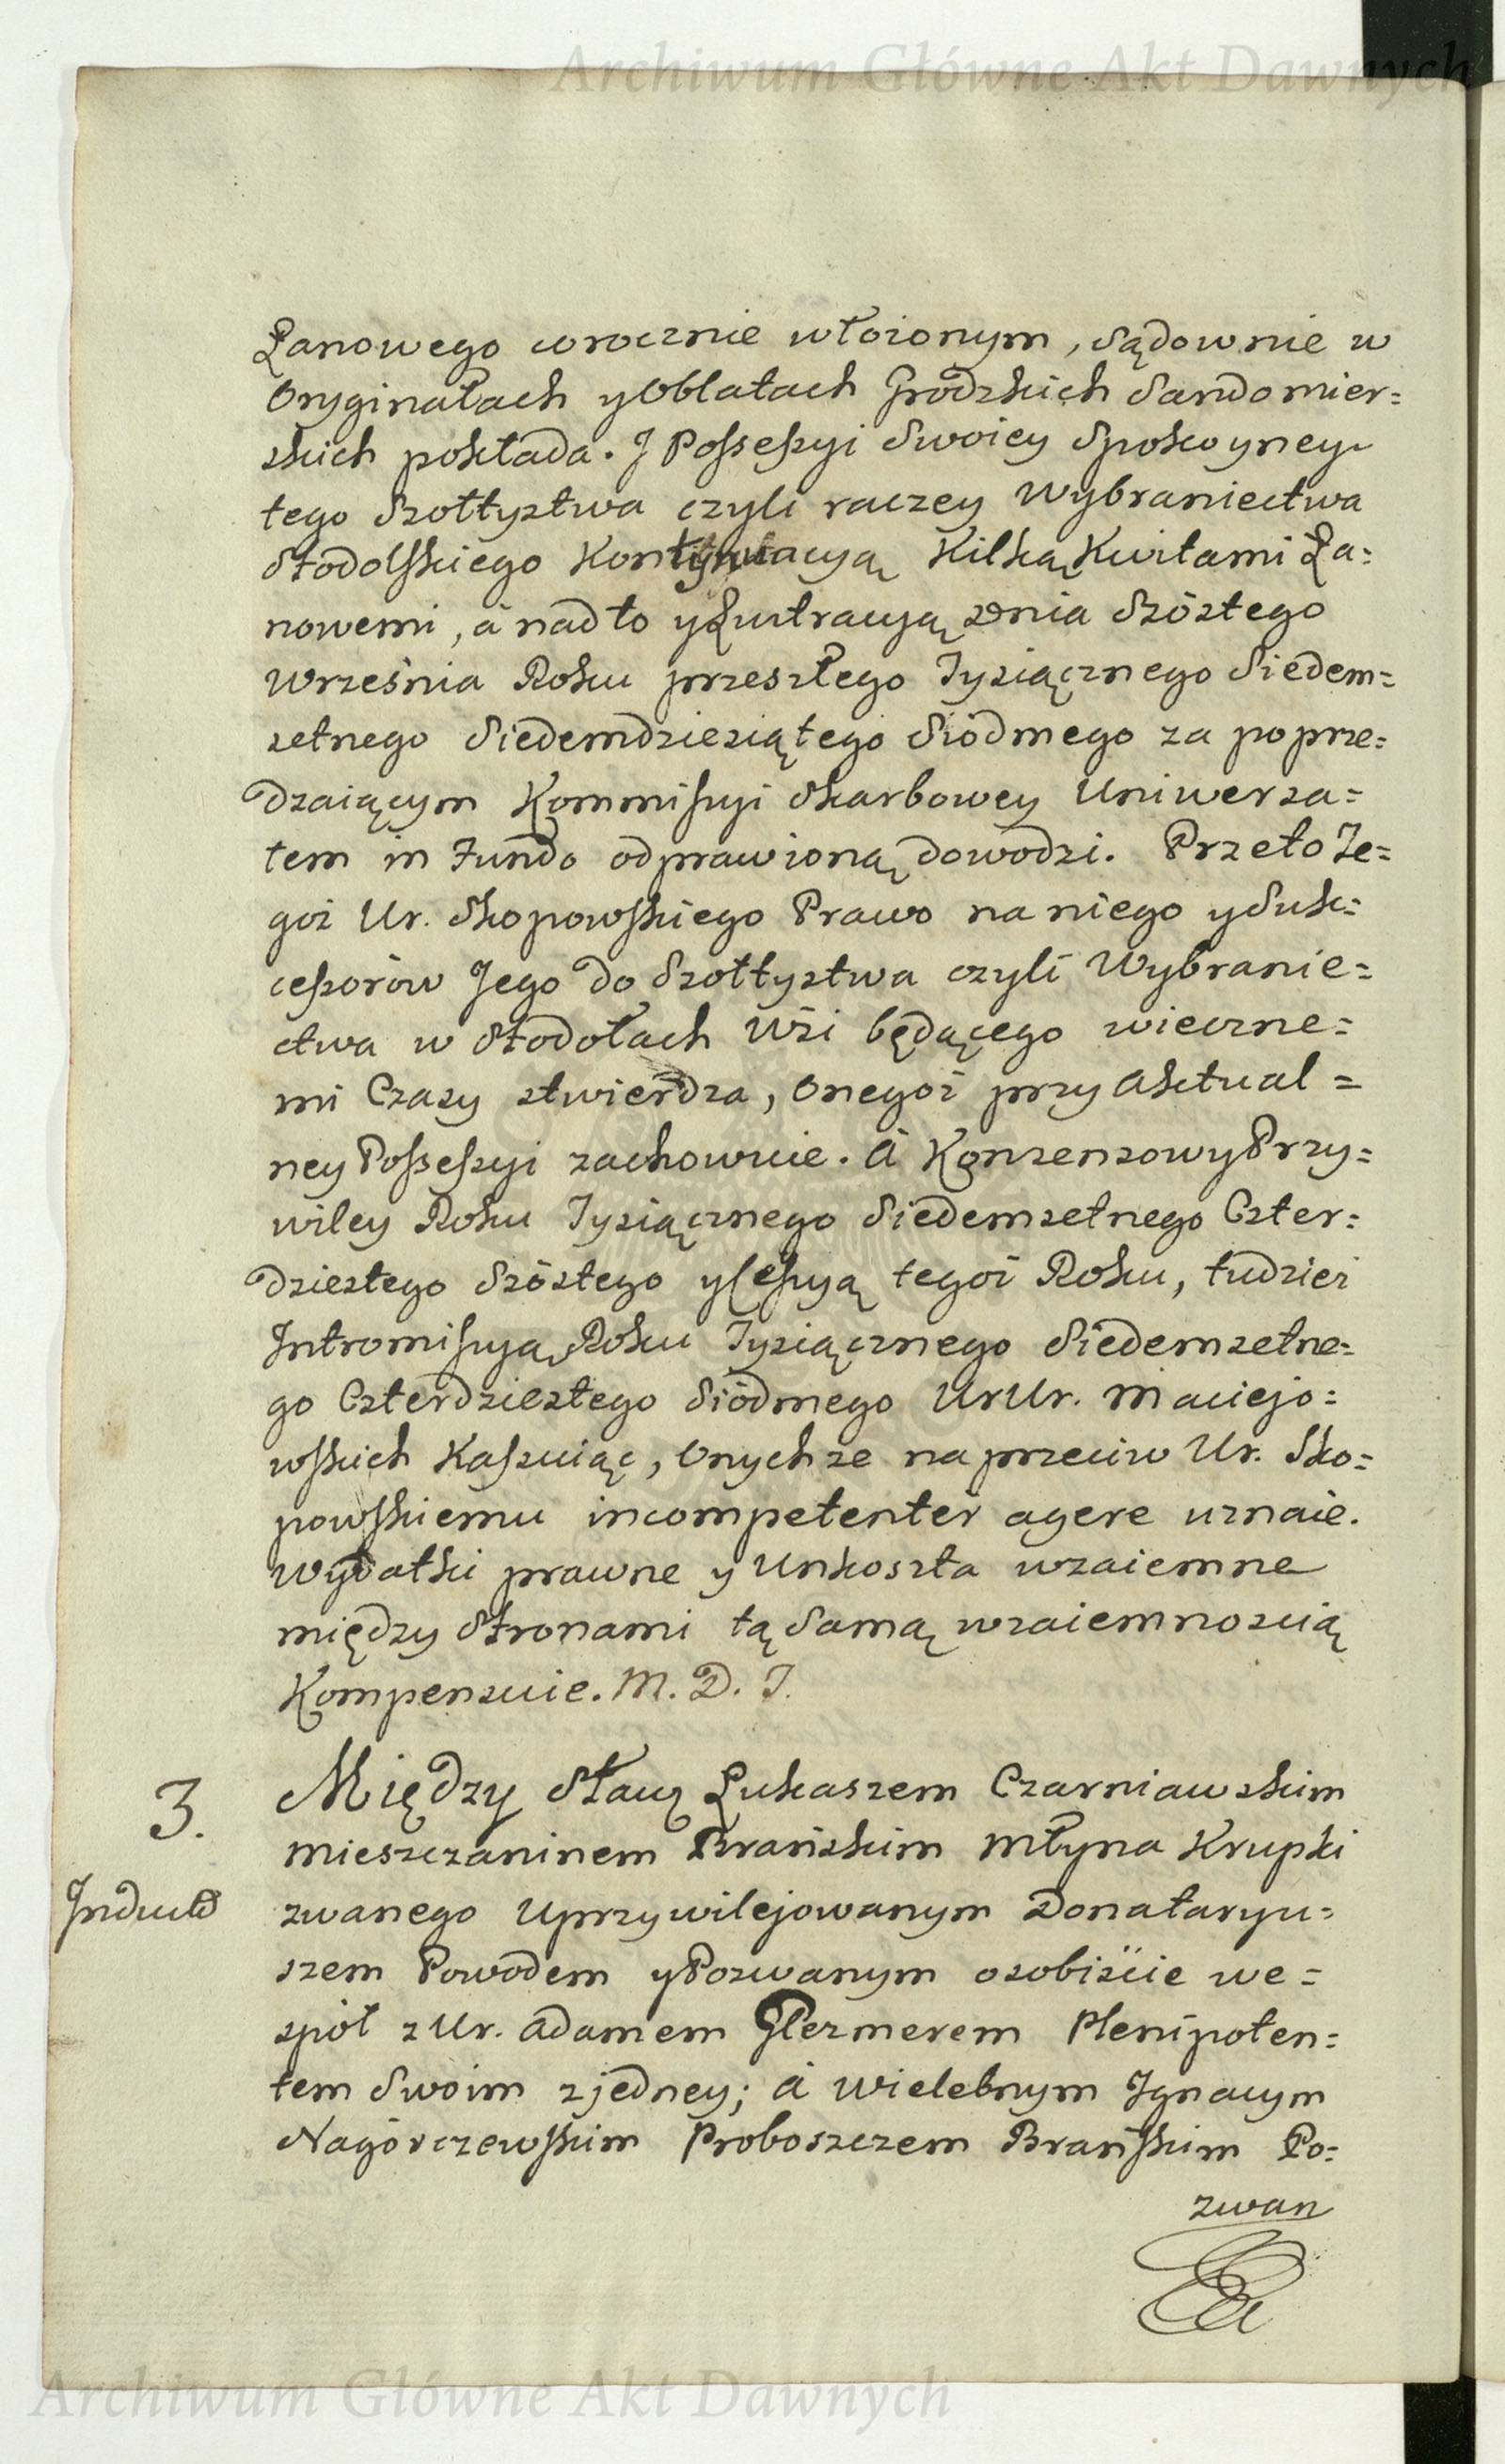 Archiwum Główne Akt Dawnych
Łanowego corocznie włożonym, Sądownie w
Oryginałach y Oblatach Grodzkich Sandomier=
skich pokłada. I Possessyi Swoiey Spokoyney
tego Szołtystwa czyli raczey Wybraniectwa
Stodolskiego Kontynuacyą Kilką Kwitami Ła=
nowemi, á nadto y Lustracyą Dnia Szóstego
Września Roku przeszłego Tysiącznego Siedem=
setnego Siedemdziesiątego Siódmego za poprze=
dzaiącym Kommissyi Skarbowey Uniwersa=
łem in Fundo odprawioną dowodzi. Przeto Te=
goż Ur. Skopowskiego Prawo na niego y Suk=
cessorów Jego do Szołtystwa czyli Wybranie=
ctwa w Stodołach Wsi będącego wieczne=
mi Czasy stwierdza, Onegoż przy Aktual=
ney Possessyi zachowuie. á Konsensowy Przy=
wiley Roku Tysiącznego Siedemsetnego Czter=
dziestego Szóstego y Cessyą tegoż Roku, tudzież
Intromissyą Roku Tysiącznego Siedemsetne=
go Czterdziestego Siódmego UrUr. Maciejo=
wskich Kassuiąc, Onychże naprzeciw Ur. Sko=
powskiemu incompetenter agere uznaie.
Wydatki prawne y Unkoszta wzaiemne
między Stronami tą Samą wzaiemnością
Kompensuie. M. D. I.
3.
Między Sław Łukaszem Czarniawskim
Mieszczaninem Brańskim Młyna Krupki
Indult
zwanego Uprzywilejowanym Donataryu=
szem Powodem y Pozwanym osobiście we=
spół z Ur. Adamem Glezmerem Plenipoten=
tem Swoim z jedney; á Wielebnym Ignacym
Nagórczewskim Proboszczem Brańskim Po=
zwan
Archiwum Główne Akt Dawnych